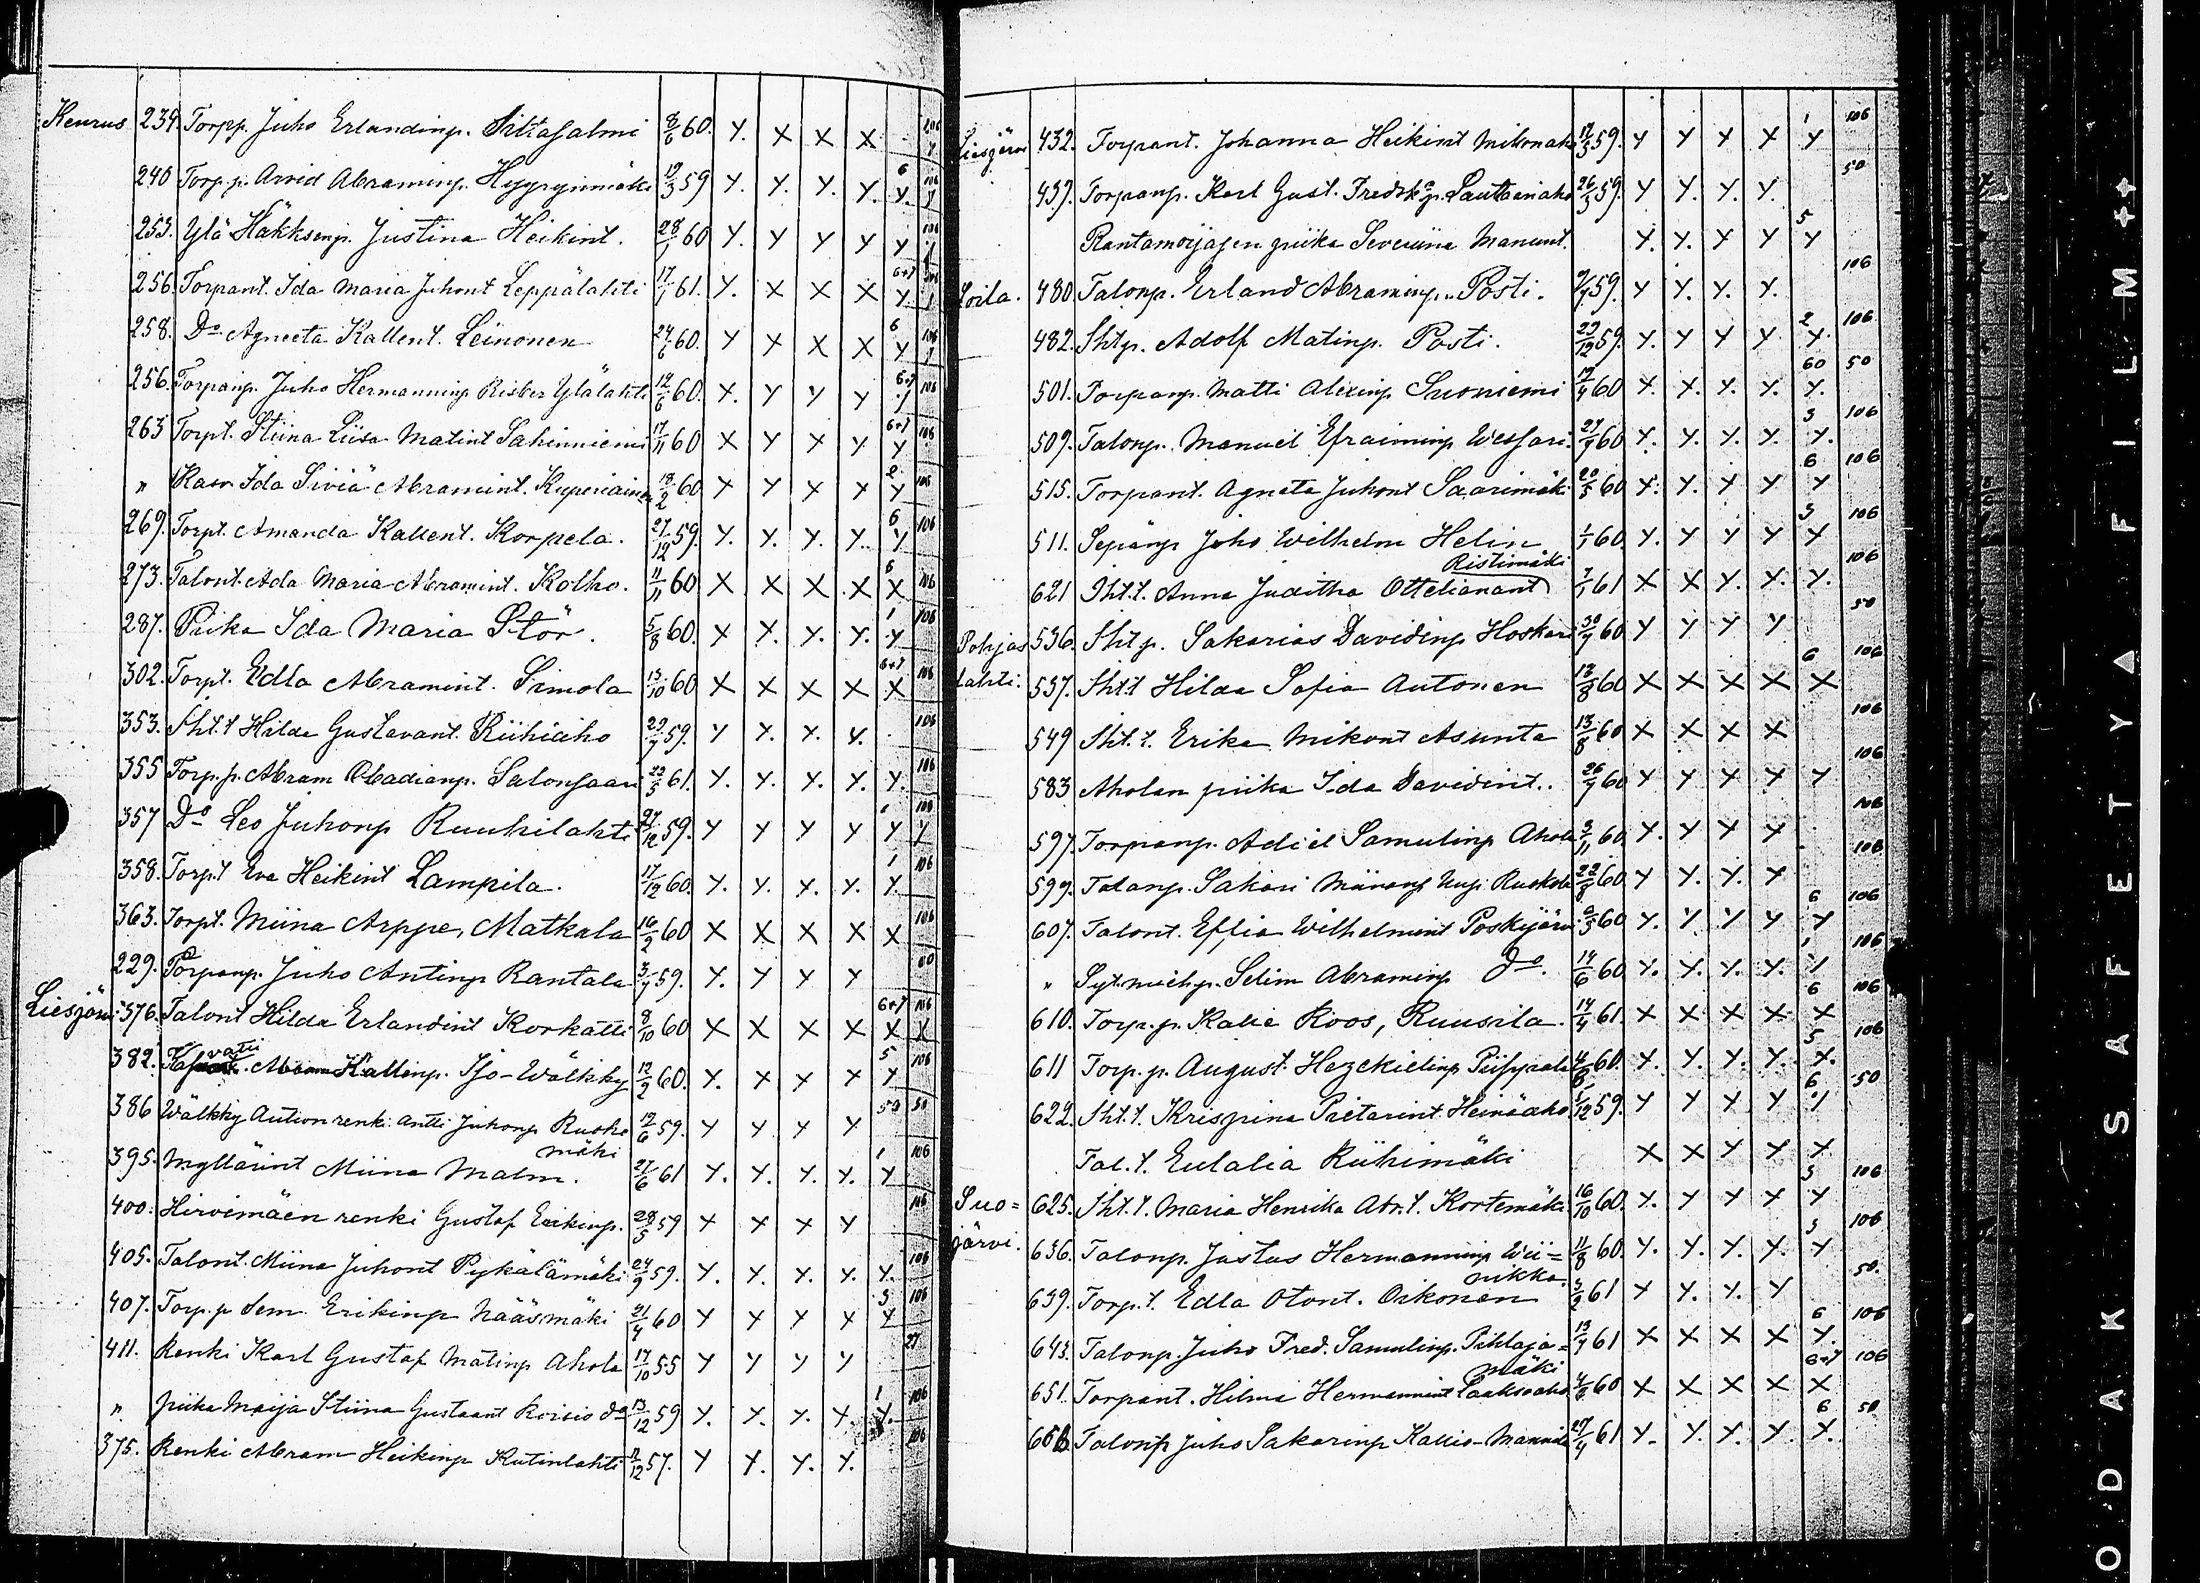 Keurus 239. Torpp. Juho Erlandinp. Siltasalmi 8/6 60. Y. X X X 106
240 Torp.p. Arvid Abraminp. Hyyrynmäki 19/3 59 Y. Y. Y. Y. Y. 6 106
253. Ylä Häkksenp. Justina Heikint. 28/1 60 Y. Y Y Y Y 106
256. Torpant. Ida Maria Juhont Leppälahti 17/1 61. Y. X X X Y. 6+7 106
258. Do Agneeta Kallent. Leinonen 24/6 60. Y X X X Y 6 106
256. Torpanp. Juho Hermanninp Risber Ylälahti 12/6 60. X. Y Y Y Y 6+7 106
263 Torpt. Stiina Liisa Matint Sahinniemi 17/11 60 X Y X Y Y 6+7 106
" Kasv Ida Siviä Abramint. Kuperiainen 18/2 60 Y Y X X Y 2 106
269. Torpt. Amanda Kallent. Korpela. 27/12 59. Y. Y. Y. Y. Y 6 106
273. Talont. Ada Maria Abramint. Kolho. 11/11 60 X X X X X 6 106
287. Piika Ida Maria Stör. 5/8 60. X Y. Y. Y. Y 1 106
302. Torpt. Edla Abramint. Simola 13/10 60 X X X X X 6+7 106
353. Iht.t Hilda Gustavant. Riihiaho 29/7 59. Y Y. Y. Y. 106
355 Torp.p. Abram Obadianp. Salonsaari 22/3 61. Y. Y. Y. Y. Y. 106
357 Do Leo Juhonp Ruuhilahti 27/12 59. Y Y Y Y Y 106
358. Torp.t Eva Heikint Lampila. 17/12 60. Y. Y. Y. Y. Y. 1 106
363. Torpt. Miina Arppe, Matkala 16/9 60 X X X X X 106
229. Torpanp. Juho Antinp Rantala 3/7 59. Y. Y Y Y 60
Liesjärvi 376. Talont Hilda Erlandint Korkatti 8/10 60 X X X X X 6+7 106
382. vatti Kallinp. Iso-Wälkky 12/2 60. Y. X X Y Y 5 106
386 Wälkky Aution renki Antti Juhonp Ruske 12/6 59. Y Y Y Y 50 50
mäki
395. Myllärint Miina Malm. 27/6 61 Y. Y. Y. Y. Y 1 106
400. Hirvimäen renki Gustaf Erikinp. 28/5 59 Y X X Y 106
405. Talont. Miina Juhont Pykälämäki 24/9 59. Y. Y. Y. Y. Y. 106
407. Torp.p Sem Erikinp Nääsmäki 21/4 60 Y Y Y Y Y 3 106
411. Renki Karl Gustaf Matinp Ahola 17/10 55 Y Y Y Y 27
" piika Maija Stiina Gustaant Koisio do 13/12 59 Y. Y. Y. Y. Y. 1 106
375. Renki Abram Heikinp Kutinlahti 12/12 57. Y Y. Y. Y. 106
Liesjärvi 432. Torpant. Johanna Heikint Mikonaho 17/3 59. Y Y Y X Y 1 106
439. Torpanp. Karl Gust. Fredrk.p. Lautaniaho 26/3 59. Y Y. Y. Y. 50
Rantamoijasen piika Severiina Manunt. Y. Y. Y Y Y 5
Loila. 480. Talonp. Erland Abraminp. Posti. 9/7 59. Y Y. Y. Y. 106
482. Ihtp. Adolf Matinp. Posti. 29/12 59. Y. Y Y Y Y. 2 106
501. Torpanp. Matti Alexinp Suoniemi 17/4 60 Y. Y. Y. Y. Y. 60 50
509. Talonp. Manuel Efraiminp Wessari. 27/7 60 Y. Y. Y. Y. Y. 3 106
515. Torpant. Agneta Juhont Saarimäki 20/5 60 Y. Y. Y Y Y 6 106
511. Sepänp Juho Wilhelm Helin 1/1 60. Y. Y Y Y Y 3 106
Ristimäki
621 Iht.t. Anna Juditha Ottelianant 7/1 61 X X Y. X. Y. 106
Pohjas 536. Ihtp. Sakarias Davidinp Hoskari 30/7 60 Y Y Y Y 50
lahti. 537. Iht.t Hilda Sofia Autonen 13/8 60 X X X X X 6 106
549 Iht.t. Erika Mikont Asunta 13/8 60 X X X X 106
583 Aholan piika Ida Davidint.. 26/7 60 Y Y Y Y Y 106
597. Torpanp. Adiel Samulinp Ahola 3/11 60 Y. Y Y Y 106
599. Talonp. Sakari Ruskola 22/8 60 Y Y. Y. Y 106
607. Talont. Eflia Wilhelmint Poskijärvi 9/5 60 Y. Y. Y. Y Y 6 106
" Syt.miehp. Selim Abraminp Do. 14/6 60 Y. Y. Y. Y. Y 1 106
610. Torp.p. Kalle Roos, Ruusila. 14/4 61. X X X X X 6 106
611 Torp.p. August. Hezekielinp Piispala 4/8 60. Y. Y. Y. Y. Y. 5 106
622. Iht.t. Krispina Pietarint Heinäaho. 5/12 59. Y Y Y Y Y 6 50
Tal.t. Eulalia Riihimäki X X Y Y Y
Suo= 625. Iht.t. Maria Henrika Abr.t. Kortemäki 16/10 60. Y. Y Y Y Y 3 106
järvi. 636. Talonp. Justus Hermanninp Wii= 11/8 60. Y. Y. Y. Y. Y 3 106
nikka.
639. Torp.t. Edla Otont. Oikonen 3/2 61 Y Y. Y. Y 50.
643. Talonp. Juho Fred. Samulinp. Pihlaja= 13/7 61 X X X X Y. 6 106
mäki
651. Torpant. Hilma Hermannint Paaksoaho 4/9 60 X X X X X 6+7 106
656. Talonp Juho Sakarinp Kallio-Mannila 27/4 61 Y. Y. Y. Y. Y. 6 50
KODAK SAFETY FILM